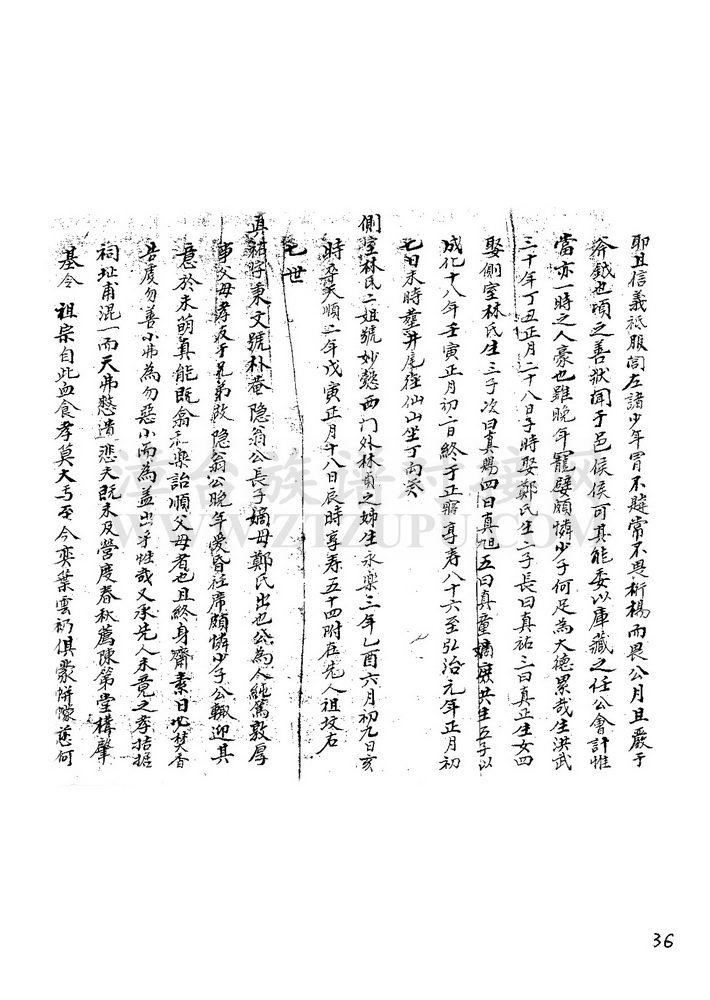 耶且信義祗服閭左諸少年胥不踶常不畏桁楊而畏公月旦嚴于
斧鉞也頃之善狀聞于邑侯侯可其能委以庫藏之任公會計惟
當亦一時之人豪也雖晚年寵嬖頗憐少子何足為大德累哉生洪武
三十年丁丑正月二十八日子時娶鄭氏生二子長曰真祐三曰真正生女四
娶側室林氏生三子次曰真賜四曰真旭五曰真童嫡庶共生五子以
成化十八年壬寅正月初二日終于正寢享壽八十六至弘治元年正月初
七日未時塟井尾徑仙山坐丁向癸
側室林氏二姐號妙懿西门外林貞之姊生永樂三年乙酉六月初九日亥
時卒天順二年戊寅正月十八日辰時享寿五十四附在先人祖坟右
七世
真祐字秉文號朴菴隐翁公長子嫡母鄭氏出也公為人純篤敦厚
事父母孝友于兄弟故隐翁公晚年愛昏袵席頗憐少子公輙迎其
意於未萌真能既翕和樂詒順父母者也且終身齋素日必焚香
告虔勿善小弗為勿惡小而為盖出于性哉又承先人未竟之孝拮据
祠址甫混一而天弗慭遺悲夫既未及營度春秋薦陳第堂構肇
基令 祖宗自此血食孝莫大焉至今奕葉雲礽俱蒙帡幪蔭何
澤台族谱对接网
WWW.ZTZUPU.COM
36